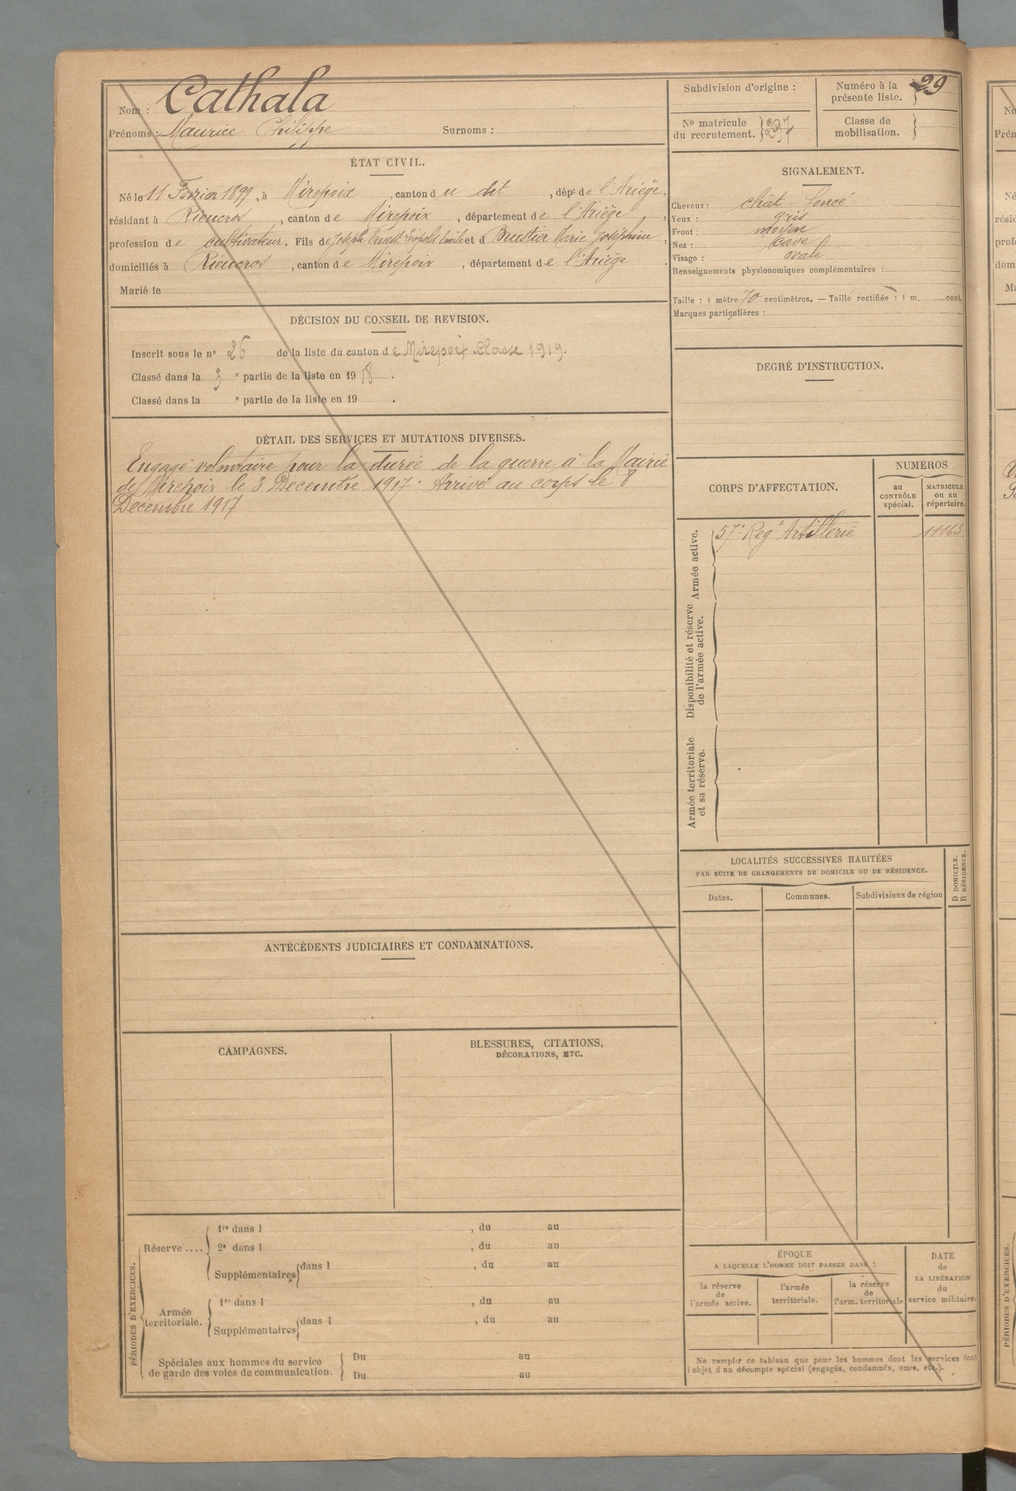 Nom : Cathala
Prénoms : Maurice Philippe Surnoms :
ÉTAT CIVIL.
Né le 11 Février 1899, à Mirepoix, canton du dit, dépt de l'Ariège,
résidant à Rieucros, canton de Mirepoix, département de l'Ariège,
profession de cultivateur. Fils de Joseph Ernest Léopold Emile et d Marie Joséphine,
domiciliés à Rieucros, canton de Mirepoix, département de l'Ariège
Marié le
DÉCISION DU CONSEIL DE REVISION.
Inscrit sous le n° 26 de la liste du canton de Mirepoix Classe 1919.
Classé dans la 3 e partie de la liste en 1918.
Classé dans la e partie de la liste en 19 .
DÉTAIL DES SERVICES ET MUTATIONS DIVERSES.
Engagé volontaire pour la durée de la guerre à la Mairie
de Mirepoix le 3 Décembre 1917. Arrivé au corps le 8
Décembre 1917
ANTÉCÉDENTS JUDICIAIRES ET CONDAMNATIONS.
CAMPAGNES.
BLESSURES, CITATIONS,
DÉCORATIONS, ETC.
PÉRIODES D'EXERCICES.
Réserve ....
1re dans l , du au
2e dans l , du au
Supplémentaires dans l , du au
Armée
territoriale.
1re dans l , du au
Supplémentaires dans l , du au
Spéciales aux hommes du service
de garde des voies de communication.
Du au
Du au
Subdivision d'origine :
Numéro à la
présente liste. 29
No matricule
du recrutement.
Classe de
mobilisation.
SIGNALEMENT.
Cheveux : chât - foncé
Yeux : gris
Front : moyen
Nez : cave
Visage : ovale
Renseignements physionomiques complémentaires :
Taille : 1 mètre 70 centimètres. — Taille rectifiée : 1 m. cent.
Marques particulières :
DEGRÉ D'INSTRUCTION.
CORPS D'AFFECTATION.
NUMÉROS
au
CONTRÔLE
spécial.
MATRICULE
ou au
répertoire.
Armée active.
57e Regt Artillerie 11163
Disponibilité et réserve
de l'armée active.
Armée territoriale
et sa réserve.
LOCALITÉS SUCCESSIVES HABITÉES
PAR SUITE DE CHANGEMENTS DE DOMICILE OU DE RÉSIDENCE.
D DOMICILE.
R RÉSIDENCE.
Dates. Communes. Subdivisions de région
ÉPOQUE
A LAQUELLE L'HOMME DOIT PASSER DANS :
la réserve
de
l'armée active.
l'armée
territoriale.
la réserve
de
l'arm. territoriale
DATE
de
LA LIBÉRATION
du
service militaire.
Ne remplir ce tableau que pour les hommes dont les services font
l'objet d'un décompte spécial (engagés, condamnés, omis, etc.).